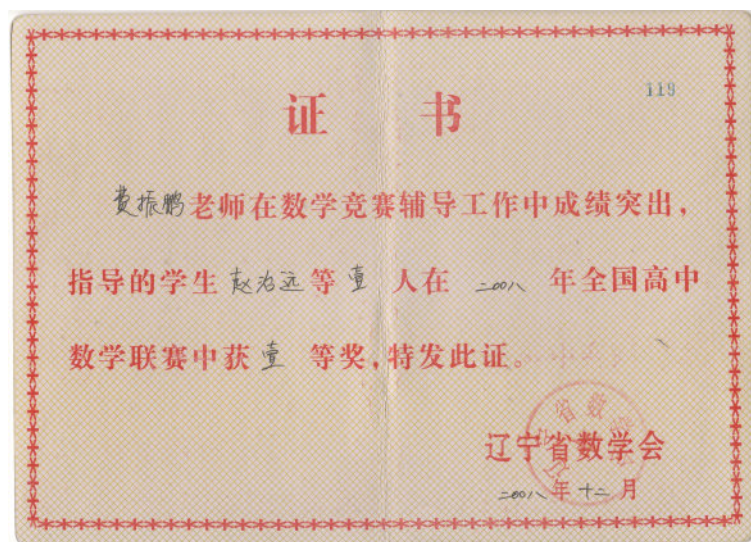 119
证 书
费振鹏老师在数学竞赛辅导工作中成绩突出，
指导的学生赵为远等壹人在二〇〇八年全国高中
数学联赛中获壹等奖，特发此证。
辽宁省数学会
二〇〇八年十二月